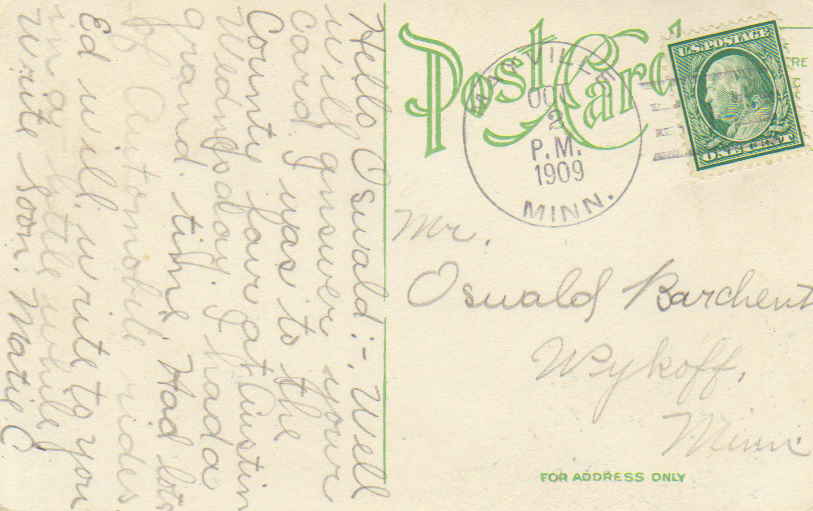 Hello Oswald:-, Well
will answer your
card, I was to the
County fair at Austin
Wednesday, I had a
grand time, Had lots
of Automobile rides
Ed will write to you
in a little while
Write soon. Matie C
Post Card
OCT
2
P.M.
1909
MINN.
U.S. POSTAGE
ONE CENT
Mr.
Oswald Barchent
Wykoff,
Minn.
FOR ADDRESS ONLY